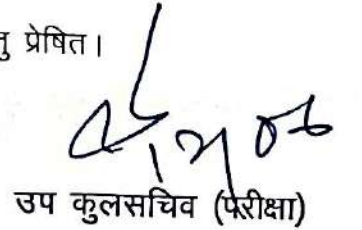 तु प्रेषित।
उप कुलसचिव (परीक्षा)